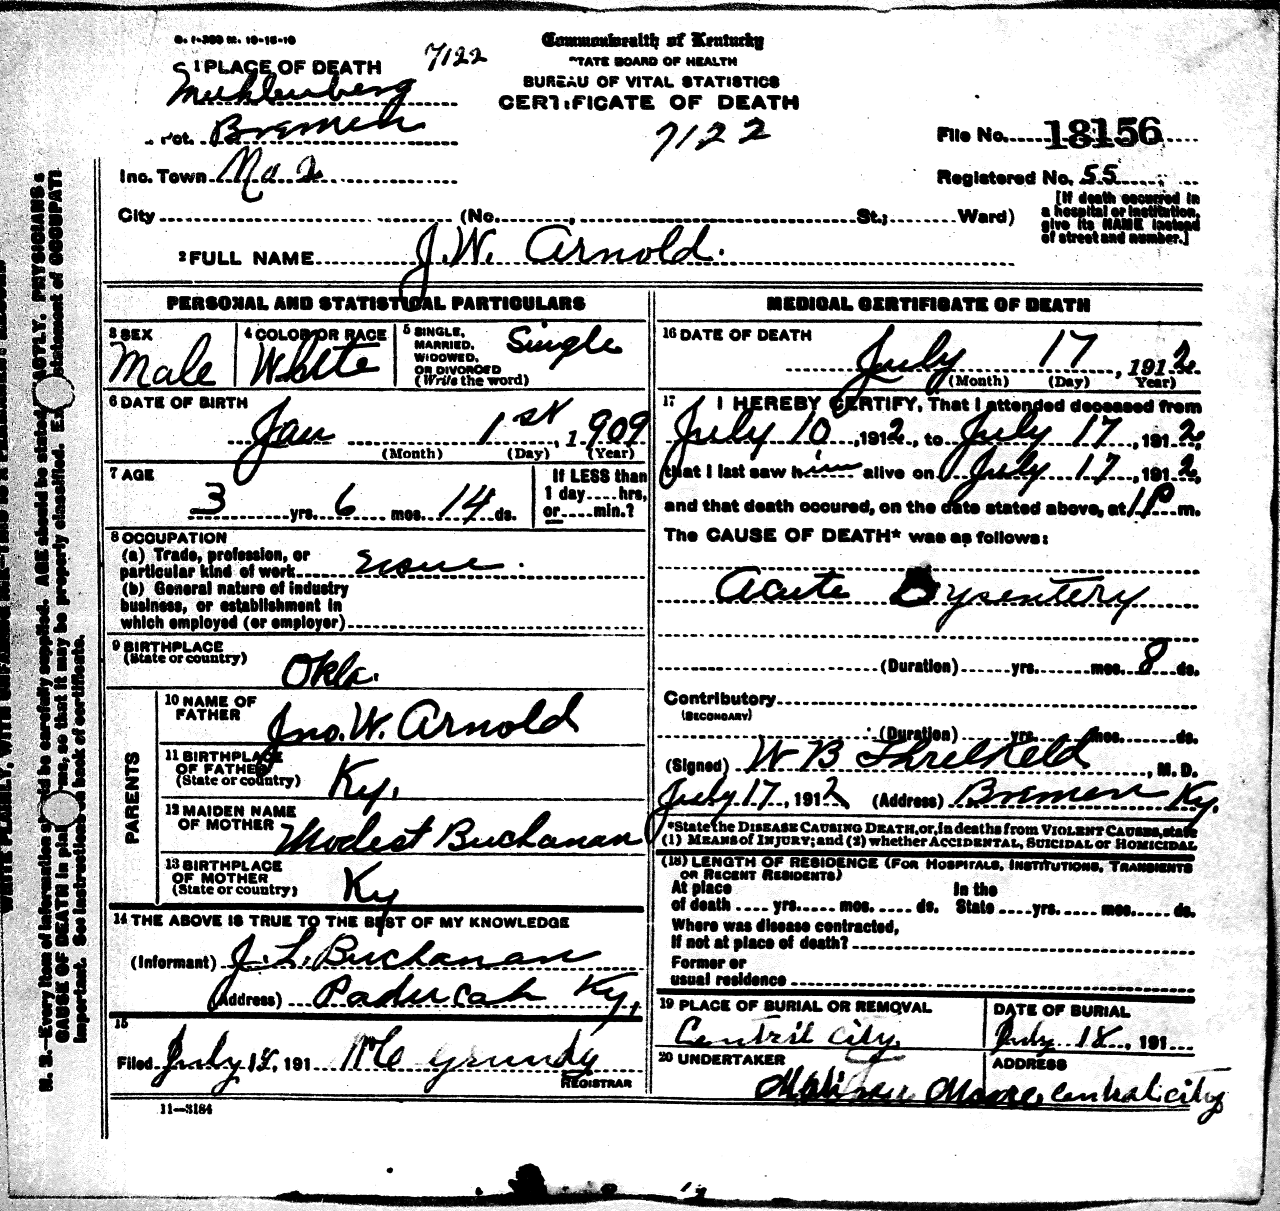 7122
Commonwealth of Kentucky
TATE BOARD OF HEALTH
BUREAU OF VITAL STATISTICS
CERTIFICATE OF DEATH
7122
1 PLACE OF DEATH
Muhlenberg
Pct. Bremen
Inc. Town No 2
City (No. , St.; Ward)
File No. 18156
Registered No. 55
[If death occurred in
a hospital or institution,
give its NAME instead
of street and number.]
2 FULL NAME J. W. Arnold.
PERSONAL AND STATISTICAL PARTICULARS
3 SEX
Male
4 COLOR OR RACE
White
5 SINGLE,
MARRIED,
WIDOWED,
OR DIVORCED
(Write the word)
Single
6 DATE OF BIRTH
Jan 1st, 1909
(Month) (Day) (Year)
7 AGE
3 yrs. 6 mos. 14 ds.
If LESS than
1 day.... hrs.
or.... min.?
8 OCCUPATION
(a) Trade, profession, or
particular kind of work
(b) General nature of industry
business, or establishment in
which employed (or employer)
9 BIRTHPLACE
(State or country)
Okla.
PARENTS
10 NAME OF
FATHER
Jno. W. Arnold
11 BIRTHPLACE
OF FATHER
(State or country)
Ky.
12 MAIDEN NAME
OF MOTHER
Modest Buchanan
13 BIRTHPLACE
OF MOTHER
(State or country)
Ky
14 THE ABOVE IS TRUE TO THE BEST OF MY KNOWLEDGE
(Informant) J. L. Buchanan
(Address) Paducah Ky.
15
Filed July 18, 191 Grundy
REGISTRAR
11—3184
MEDICAL CERTIFICATE OF DEATH
16 DATE OF DEATH
July 17, 1912
(Month) (Day) Year)
17 I HEREBY CERTIFY, That I attended deceased from
July 10, 1912, to July 17, 1912,
that I last saw him alive on July 17, 1912,
and that death occured, on the date stated above, at 1 P m.
The CAUSE OF DEATH* was as follows:
Acute Dysentery
(Duration) yrs. mos. 8 ds.
Contributory
(SECONDARY)
(Duration) yrs. mos. ds.
(Signed) W B Threlkeld, M. D.
July 17, 1912 (Address) Bremen Ky.
*State the DISEASE CAUSING DEATH, or, in deaths from VIOLENT CAUSES, state
(1) MEANS of INJURY; and (2) whether ACCIDENTAL, SUICIDAL or HOMICIDAL
(18) LENGTH OF RESIDENCE (FOR HOSPITALS, INSTITUTIONS, TRANSIENTS
OR RECENT RESIDENTS)
At place
of death .... yrs. .... mos. .... ds.
In the
State .... yrs. .... mos. .... ds.
Where was disease contracted,
If not at place of death?
Former or
usual residence
19 PLACE OF BURIAL OR REMOVAL
Central City.
DATE OF BURIAL
July 18, 191
20 UNDERTAKER
Moore
ADDRESS
Central city
N. B.—Every item of information should be carefully supplied. AGE should be stated EXACTLY. PHYSICIANS
CAUSE OF DEATH in plain terms, so that it may be properly classified. Exact statement of OCCUPATI
important. See instructions on back of certificate.